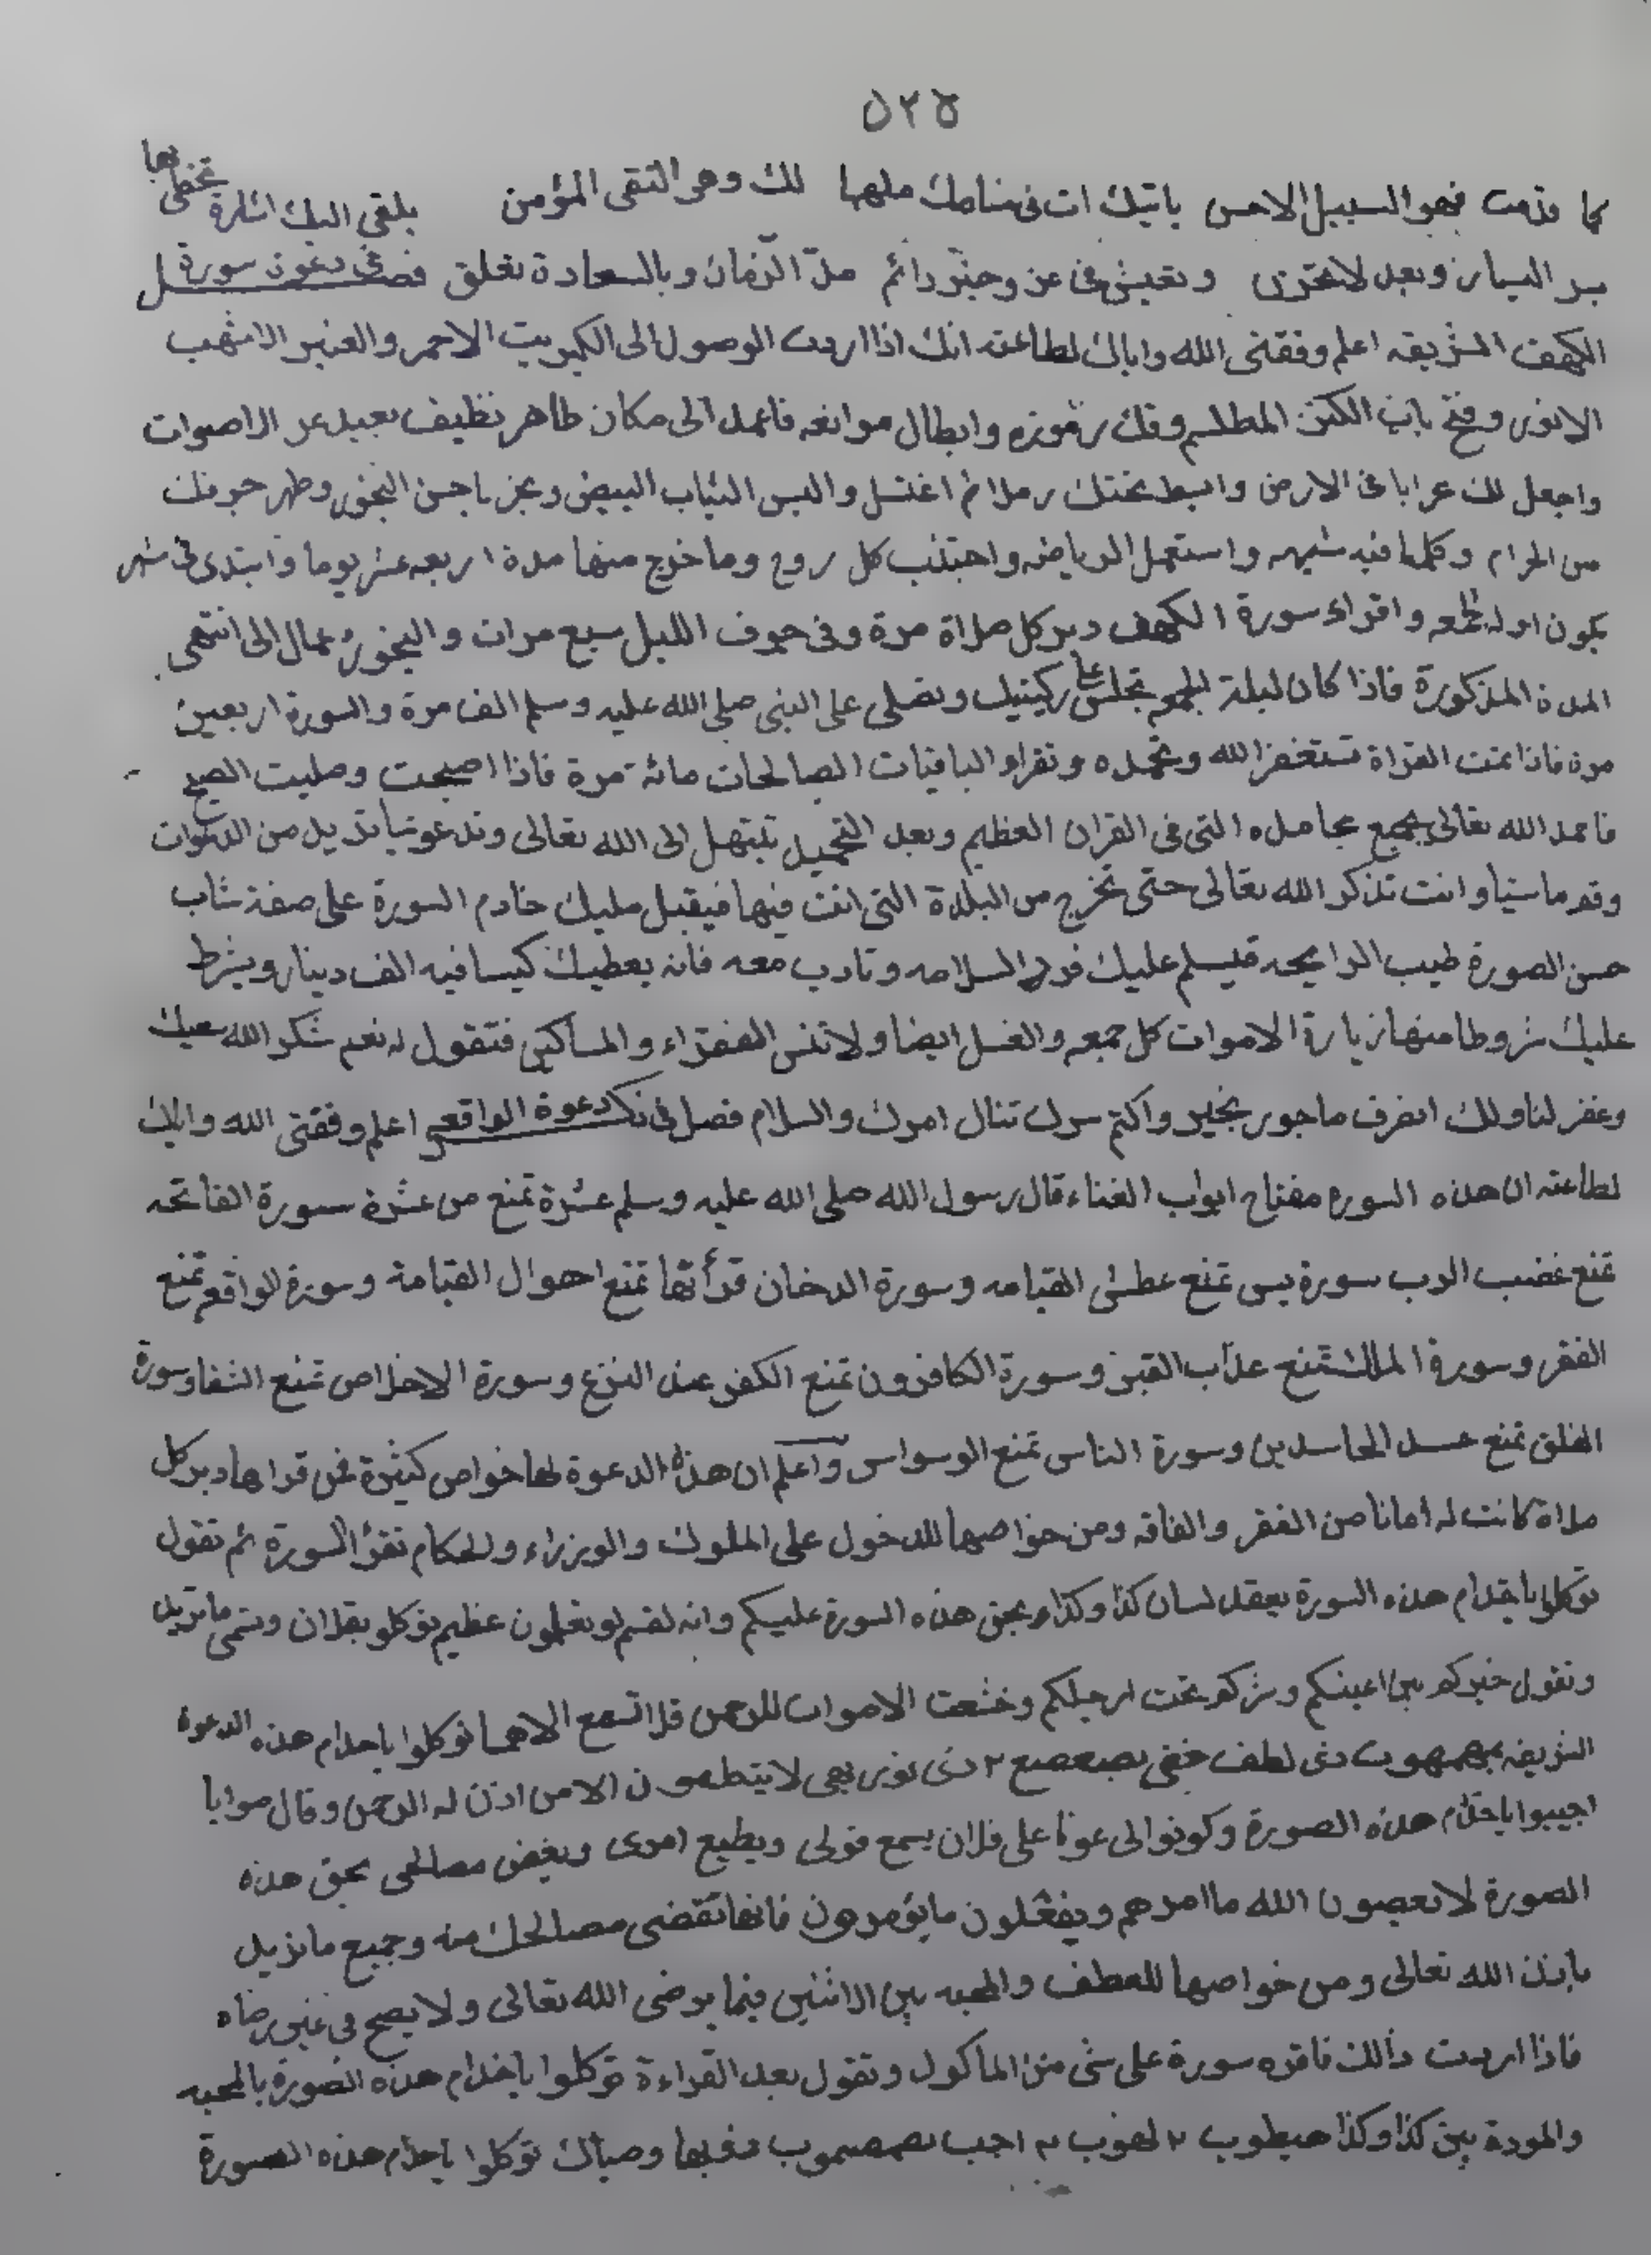 ٥٢٥
كما قدمت فهو السبيل الاحسن ياتيك ات في منامك ملهما لك وهو التقى المؤمن يلقى اليك اشارة تحظى بها
وبعد لا تحزن وتعيش في عز وخير دائم مدا الزمان وبالسعادة تعلق فصل في دعوة سورة
الكهف الشريفه اعلم وفقني الله واياك لطاعته انك اذا اردت الوصول الى الكبريت الاحمر والعنبر الاشهب
الانور وفتح باب الكنز المطلسم وفك رموزه وابطال موانعه فاعمد الى مكان طاهر نظيف بعيد عن الاصوات
واجعل لك محرابا في الارض وابسط تحتك رملا ثم اغتسل والبس الثياب البيض وبخر باحسن البخور وطهر جوفك
من الحرام وكلما فيه شبهه واستعمل الرياضه واجتنب كل روح وما خرج منها مدة اربعه عشر يوما وابتدى في شهر
يكون اوله الجمعه واقراء سورة الكهف دبر كل صلاة مرة وفي جوف الليل سبع مرات والبخور عمال الى انتهى
المدة المذكورة فاذا كان ليلة الجمعه تجلس على ركبتيك وتصلى على النبى صلى الله عليه وسلم الف مرة والسورة اربعين
مرة فاذا تمت القراة تستغفر الله وتحمده وتقراء الباقيات الصالحات مائة مرة فاذا اصبحت وصليت الصبح
فاحمد الله تعالى بجميع محامده التى فى القران العظيم وبعد التحميد تبتهل الى الله تعالى وتدعو بما تريد من الدعوات
وقم ماشيا وانت تذكر الله تعالى حتى تخرج من البلدة التى انت فيها فيقبل عليك خادم السورة على صفة شاب
حسن الصورة طيب الرايحه فيسلم عليك فرد السلامه وتادب معه فانه يعطيك كيسا فيه الف دينار ويشرط
عليك شروطا منها زيارة الاموات كل جمعه والغسل ايضا ولا تنس الفقراء والمساكين فتقول له نعم شكر الله سعيك
وغفر لنا ولك انصرف ماجور بخير واكتم سرك تنال امرك والسلام فصل في ذكر دعوة الواقعه اعلم وفقنى الله واياك
لطاعته ان هذه السوره مفتاح ابواب الغناء قال رسول الله صلى الله عليه وسلم عشرة تمنع من عشرة سورة الفاتحه
تمنع غضب الرب سورة يس تمنع عطش القيامه وسورة الدخان قرأتها تمنع اهوال القيامة وسورة الواقعه تمنع
الفقر وسورة الملك تمنع عذاب القبر وسورة الكافرون تمنع الكفر عند النزع وسورة الاخلاص تمنع النفاق وسورة
الفلق تمنع حسد الحاسدين وسورة الناس تمنع الوسواس واعلم ان هذه الدعوة لها خواص كثيرة فمن قراها دبر كل
صلاة كانت له امانا من الفقر والفاقه ومن خواصها للدخول على الملوك والوزراء والحكام تقرأ السورة ثم تقول
توكلوا يا خدام هذه السورة بعقد لسان كذا وكذا بحق هذه السورة عليكم وانه لقسم لو تعلمون عظيم توكلو بفلان وتسمى ما تريد
وتقول خيركم بين اعينكم وشركم تحت ارجلكم وخشعت الاصوات للرحمن فلا تسمع الا همسا توكلوا يا خدام هذه الدعوة
الشريفه بمهمهوب ذى لطف خفى بصعصع ٢ ذى نور بهى لا يتكلمون الا من اذن له الرحمن وقال صوابا
اجيبوا يا خدام هذه الصورة وكونوا لى عونا على فلان يسمع قولى ويطيع امرى ويقض مصالحى بحق هذه
الصورة لا يعصون الله ما امرهم ويفعلون ما يؤمرون فانها تقضى مصالحك منه وجميع ما تريد
باذن الله تعالى ومن خواصها للعطف والمحبه بين الاثنين فيما يرضى الله تعالى ولا يصح فى غير رضاه
فاذا اردت ذالك فاقره سورة على شى من الماكول وتقول بعد القراءة توكلوا يا خدام هذه الصورة بالمحبه
والمودة بين كذا وكذا هيطوب ٢ لهوب ٢ اجب توكلوا يا خدام هذه الصورة